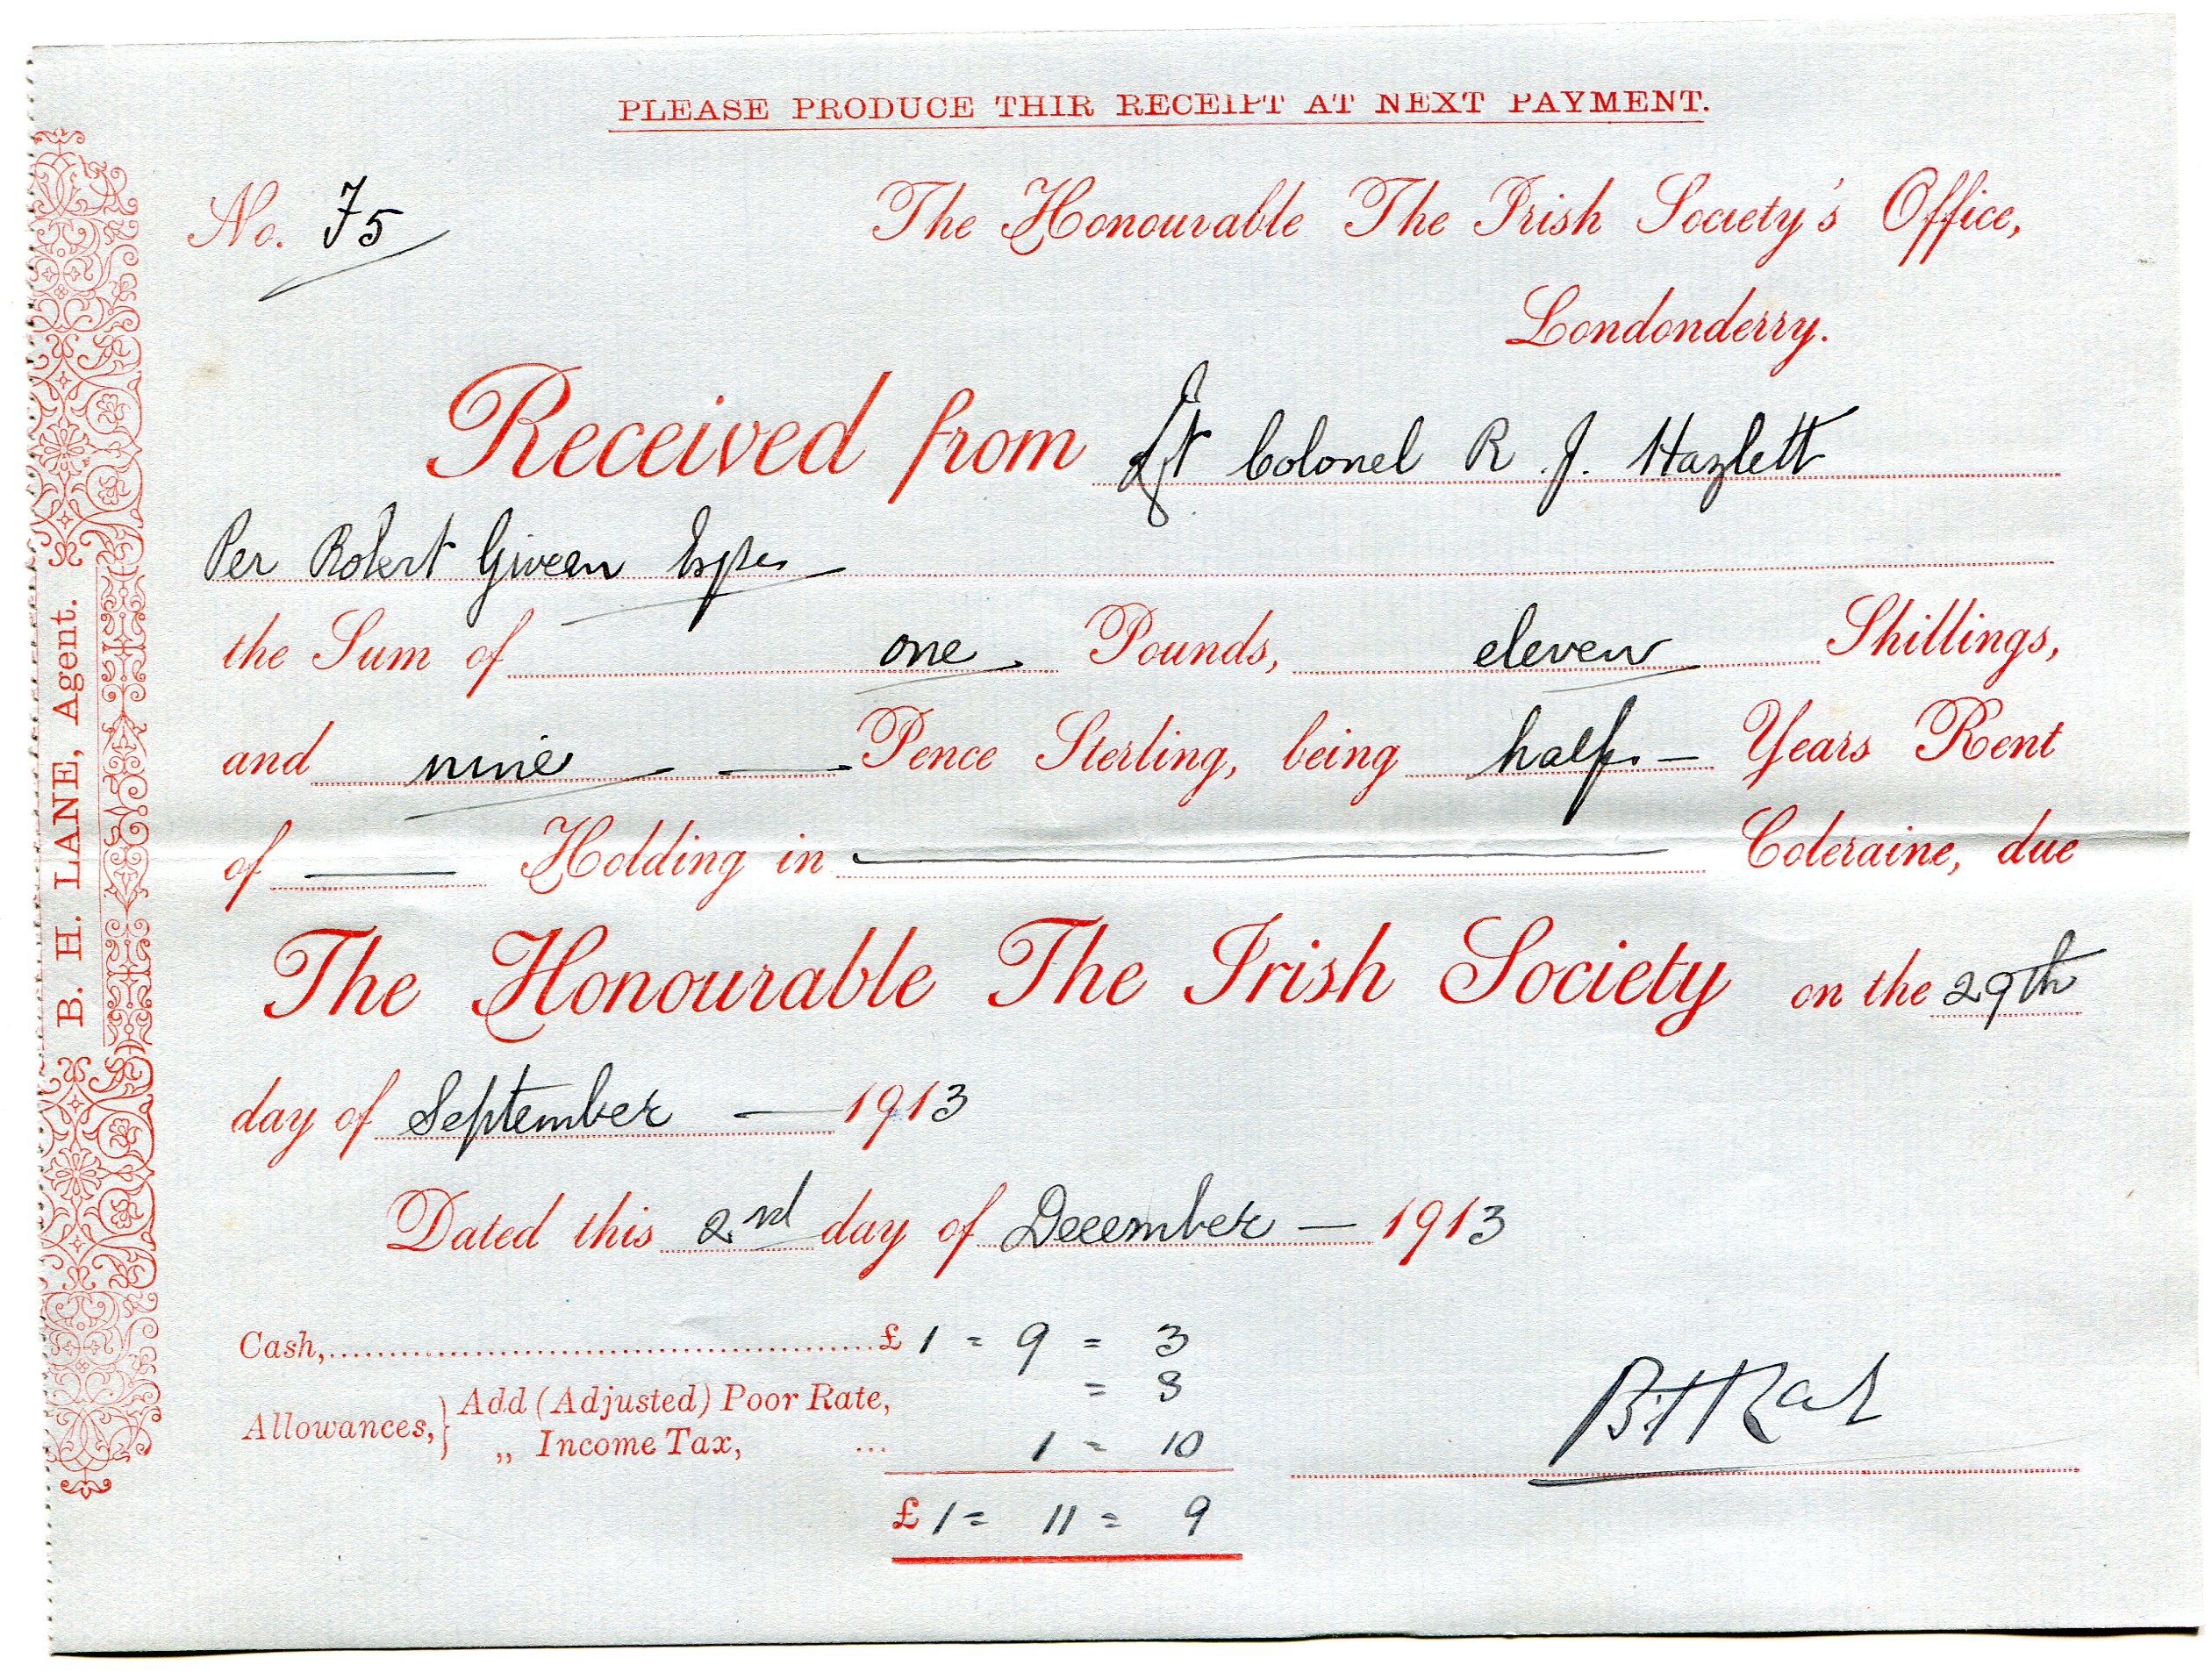 PLEASE PRODUCE THIR RECEIPT AT NEXT PAYMENT.
No. 75
The Honourable The Irish Society's Office,
Londonderry.
Received from Lt Colonel R. J. Hazlett
Per Robert Giveen Esqre
the Sum of one Pounds, eleven Shillings,
and nine Pence Sterling, being half Years Rent
of — Holding in — Coleraine, due
The Honourable The Irish Society on the 29th
day of September — 1913
Dated this 2nd day of December — 1913
Cash, £ 1 = 9 = 3
Allowances, } Add (Adjusted) Poor Rate, = 8
„ Income Tax, ... 1 = 10
£ 1 = 11 = 9
B. H. LANE, Agent.